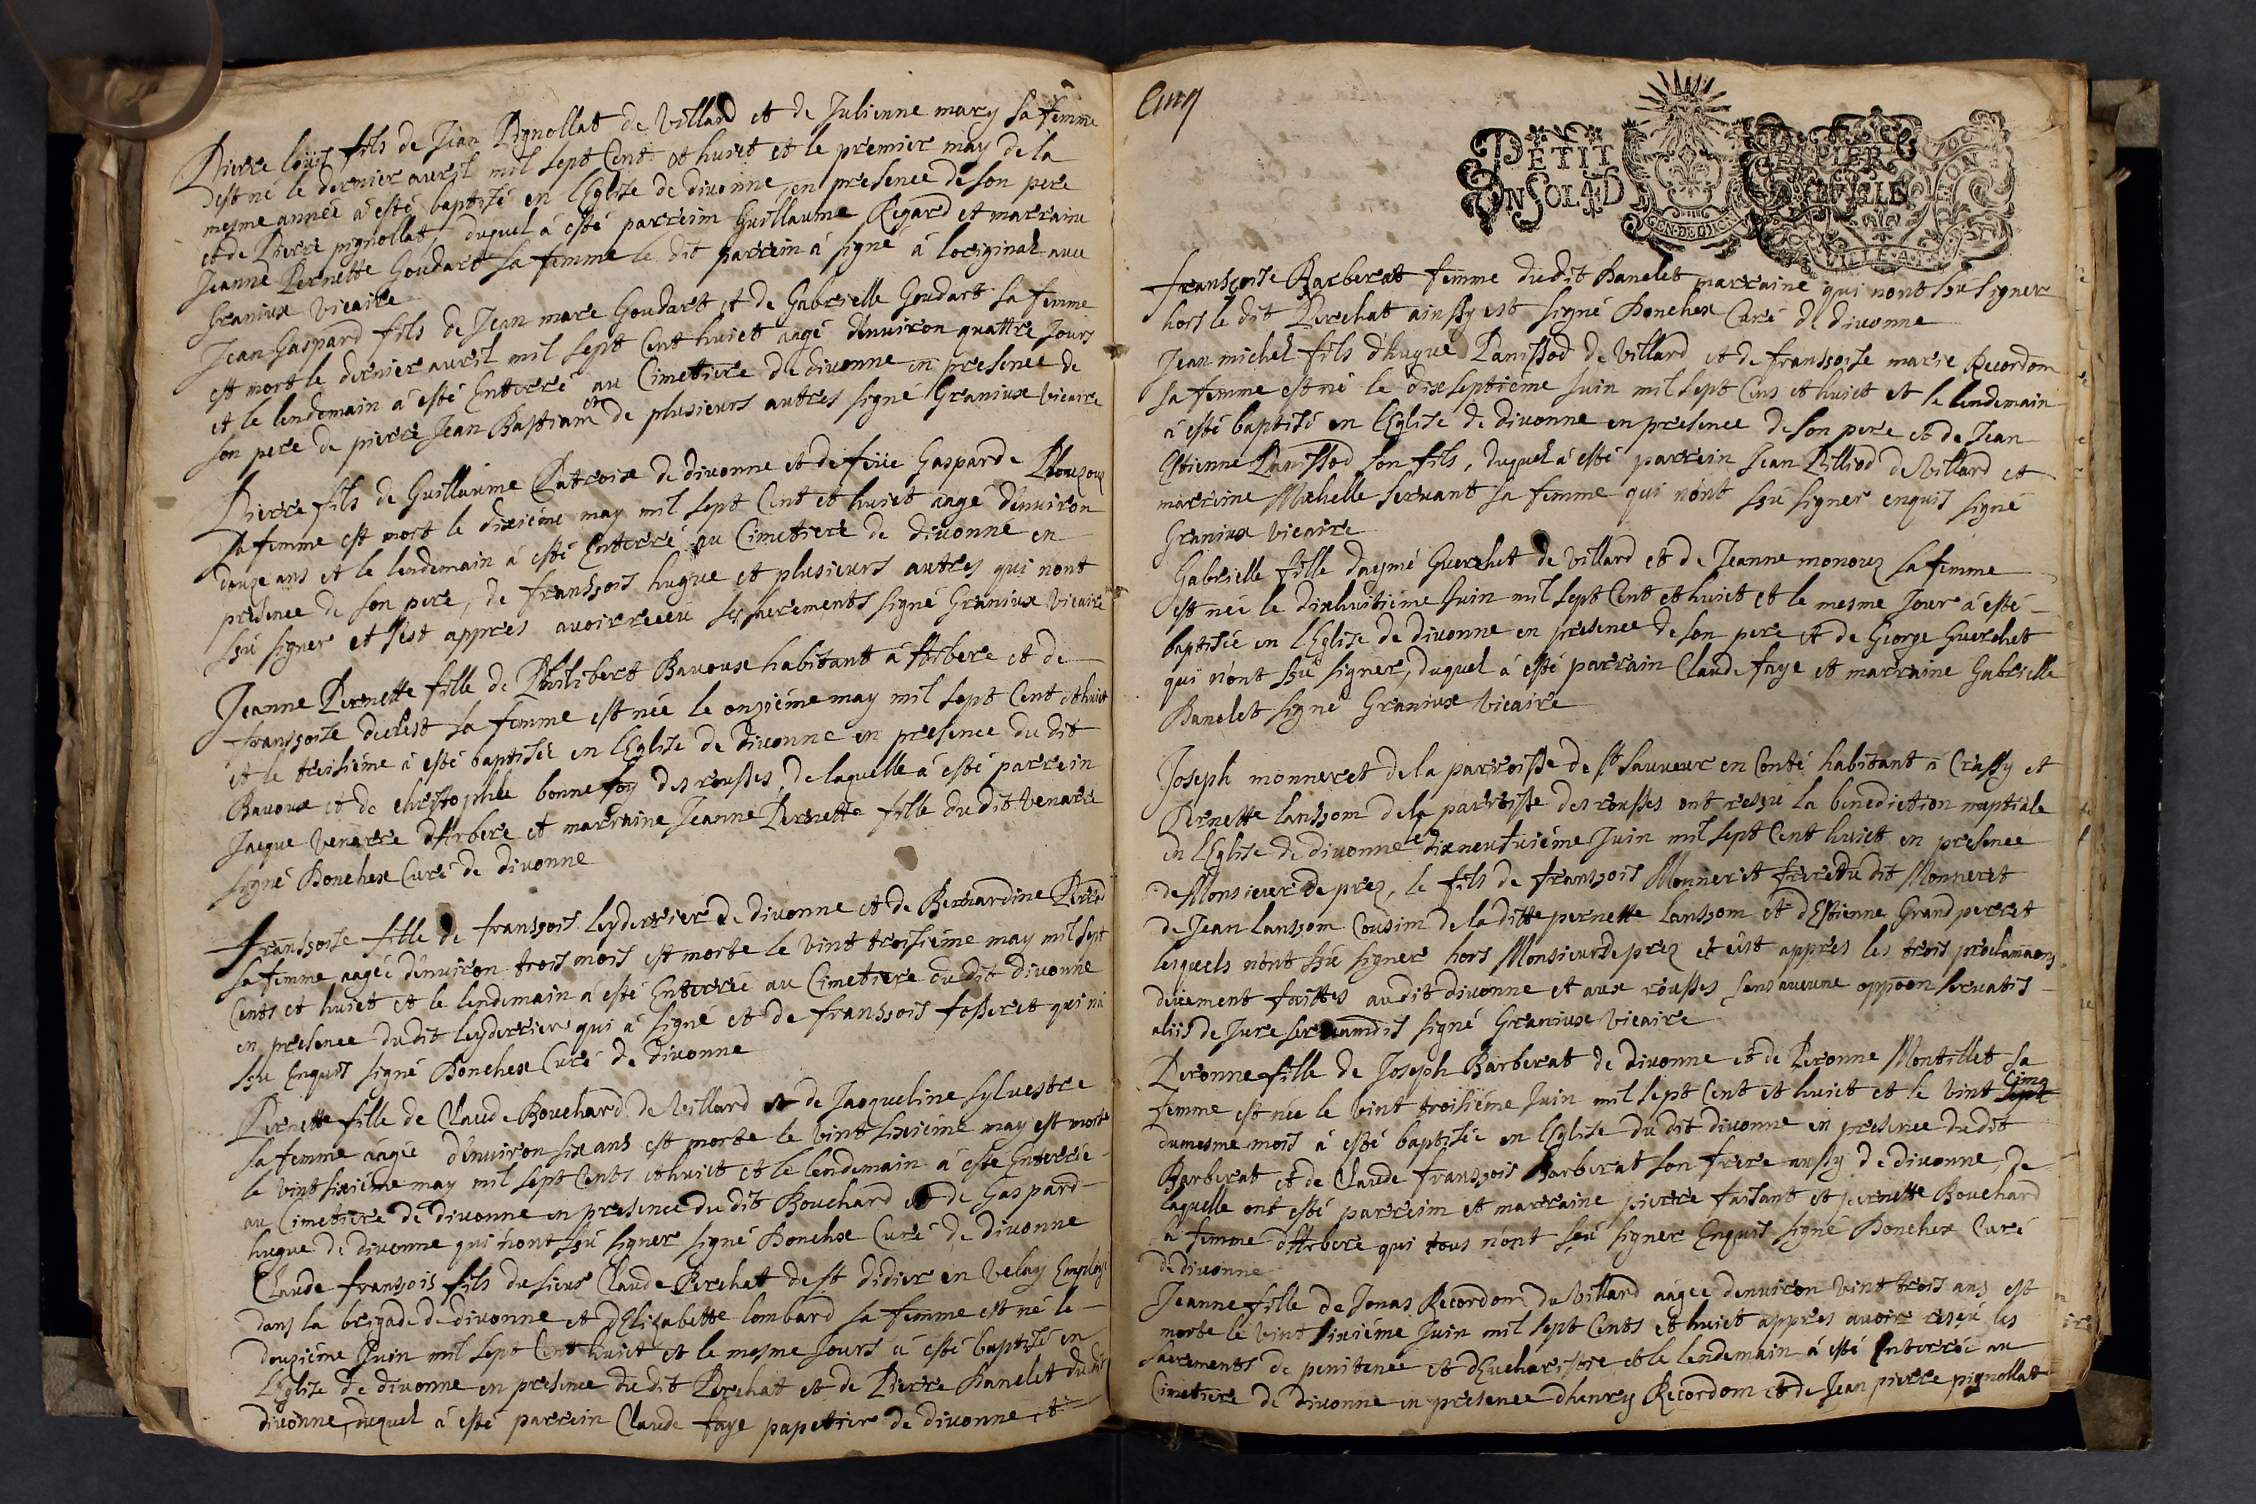 Pierre louis fils de Jean Pignollat de Villard et de Julienne mary sa femme
est né le dernier auril mil sept Cent et huict et le premier may de la
mesme année à esté baptisé en l'Eglise de diuonne en presence de son pere
et de Pierre pignollat, duquel à esté parreim Guillaume Regard et marraine
Jeanne Pernette Goudart sa femme le dit parreim à signé à l'original auec
Graniux Vicaire
Jean Gaspard fils de Jean marc Goudart et de Gabrielle Goudart sa femme
est mort le dernier auril mil sept Cent huict aagé d'enuiron quattre Jours
et le lendemain à esté Enterré au Cimetiere de diuonne en presence de
son pere de pierre Jean Bastiam et de plusieurs autres signé Graniux Vicaire
Pierre fils de Guillaume Patroix de diuonne et de feüe Gasparde
sa femme est mort le dixiéme may mil sept Cent et huict aagé d'enuiron
douze ans et le lendemain à esté Enterré au Cimetiere de diuonne en
presence de son pere, de fransçois hugue et plusieurs autres qui n'ont
sçû signer et s'est appres auoir receu ses sacrements signé Graniux Vicaire
Jeanne Pernette fille de Philibert Bauoux habitant à Arbere et de
fransçoise sa femme est née le onziéme may mil sept Cent et huict
et le treisiéme à esté baptisée en l'Eglise de diuonne en presence du dit
Bauoux et de christophle bonnefoy des rousses, de laquelle à esté parrein
Jacque Venarre d'Arbere et marraine Jeanne Pernette fille du dit Venarre
signé Bonehex Curé de diuonne
fransçoise fille de fransçois leyderrier de diuonne et de Bernardine
sa femme aagée d'enuiron trois mois est morte le vint troisiéme may mil sept
Cents et huict et le lendemain à esté Enterrée au Cimetiere du dit diuonne
en presence du dit leyderrier qui à signé et de fransçois fosseret qui n'a
sçu Enquis signé Bonehex Curé de diuonne
Pernette fille de Claude Bouchard de Villard et de Jacqueline syluestre
sa femme aagée d'enuiron six ans est morte le vint sixiéme may est morte
le vint sixiéme may mil sept Cents et huict et le lendemain à esté Enterrée
au Cimetiere de diuonne en presence du dit Bouchard et de Gaspard
hugue de diuonne qui n'ont sçû signer signé Bonehex Curé de diuonne
Claude fransçois fils du sieur Claude Perchat de st didier en Velay Employé
dans la brigade de diuonne et d'Elizabette lombard sa femme est né le
douziéme Juin mil sept Cent huict et le mesme Jours à esté baptisé en
l'Eglise de diuonne en presence du dit Perchat et de Pierre Banelet du dit
diuonne, duquel à esté parrein Claude faye papetier de diuonne et
Cinq
PETIT PAPIER
UN SOL 4 D LA FEUILLE
GEN. DE DIJON
fransçoise Barberat femme du dit Banelet marraine qui n'ont sçû signer
hors le dit Perchat ainssy est signé Bonehex Curé de diuonne
Jean michel fils d'hugue Panissod de Villard et de fransçoise marie Recordom
sa femme est né le dixseptiéme Juin mil sept Cens et huict et le lendemain
à esté baptisé en l'Eglise de diuonne en presence de son pere et de Jean
Estienne Panissod son fils, duquel à esté parrein Jean Pilliod de Villard et
marraine Michelle seruant sa femme qui n'ont sçû signer enquis signé
Graniux Vicaire
Gabrielle fille d'aymé Guerchet de Villard et de Jeanne monouz sa femme
est née le dixhuitiéme Juin mil sept Cent et huict et le mesme Jour à esté
baptisée en l'Eglise de diuonne en presence de son pere et de George Guerchet
qui n'ont sçû signer, duquel à esté parrain Claude faye et marraine Gabrielle
Banelet signé Graniux Vicaire
Joseph monneret de la parroisse de st sauueur en Conté habitant à Crassy et
Pernette lansçom de la parroisse des rousses ont resçu la benediction nuptiale
en l'Eglise de diuonne le dixneufuiéme Juin mil sept Cent huict en presence
de Monsieur de prez, le fils de fransçois Monneret frere du dit Monneret
de Jean lansçom Cousim de la ditte pernette lansçom et d'Estienne Grand perret
lesquels n'ont sçû signer hors Monsieur de prez et c'est appres les trois proclamaons
deüement faittes au dit diuonne et aux rousses sans aucune oppoon seruatis
aliis de Jure seruamdis signé Graniux Vicaire
Peronne fille de Joseph Barberat de diuonne et de Peronne Montillet sa
femme est née le vint troisiéme Juin mil sept Cent et huict et le vint sept cinq
du mesme mois à esté baptisée en l'Eglise du dit diuonne en presence du dit
Barberat et de Claude fransçois Barberat son frere aussy de diuonne, de
laquelle ont esté parreim et marraine pierre faisant et pernette Bouchard
sa femme d'Arbere qui tous n'ont sçû signer Enquis signé Bonehex Curé
de diuonne
Jeanne fille de Jonas Recordom du Villard aagée d'enuiron vint trois ans est
morte le vint sixiéme Juin mil sept Cents et huict appres auoir resçû les
sacrements de penitence et d'Eucharistie et le lendemain à esté Enterrée au
Cimetiere de diuonne en presence d'henry Recordom et de Jean pierre pignollat